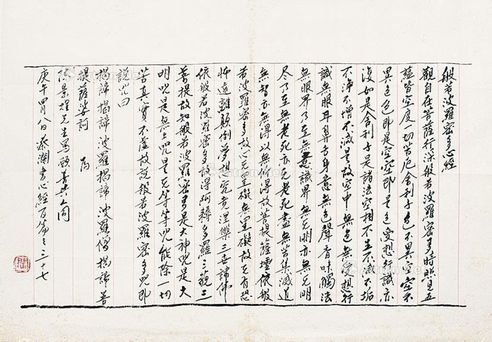 般若波羅蜜多心經
觀自在菩薩行深般若波羅蜜多時照見五
蘊皆空度一切苦厄舍利子色不異空空不
異色色即是空空即是色受想行識亦
復如是舍利子是諸法空相不生不滅不垢
不淨不增不減是故空中無色無受想行
識無眼耳鼻舌身意無色聲香味觸法
無眼界乃至無意識界無無明亦無無明
盡乃至無老死亦無老死盡無苦集滅道
無智亦無得以無所得故菩提薩埵依般
若波羅蜜多故心無罣礙無罣礙故無有恐
怖遠離顛倒夢想究竟涅槃三世諸佛
依般若波羅蜜多故得阿耨多羅三藐三
菩提故知般若波羅蜜多是大神咒是大
明咒是無上咒是無等等咒能除一切
苦真實不虛故說般若波羅蜜多咒即
說咒曰
揭諦揭諦 波羅揭諦 波羅僧揭諦 菩
提薩婆訶
景雄先生
庚午四月八日 書心經百篇之三